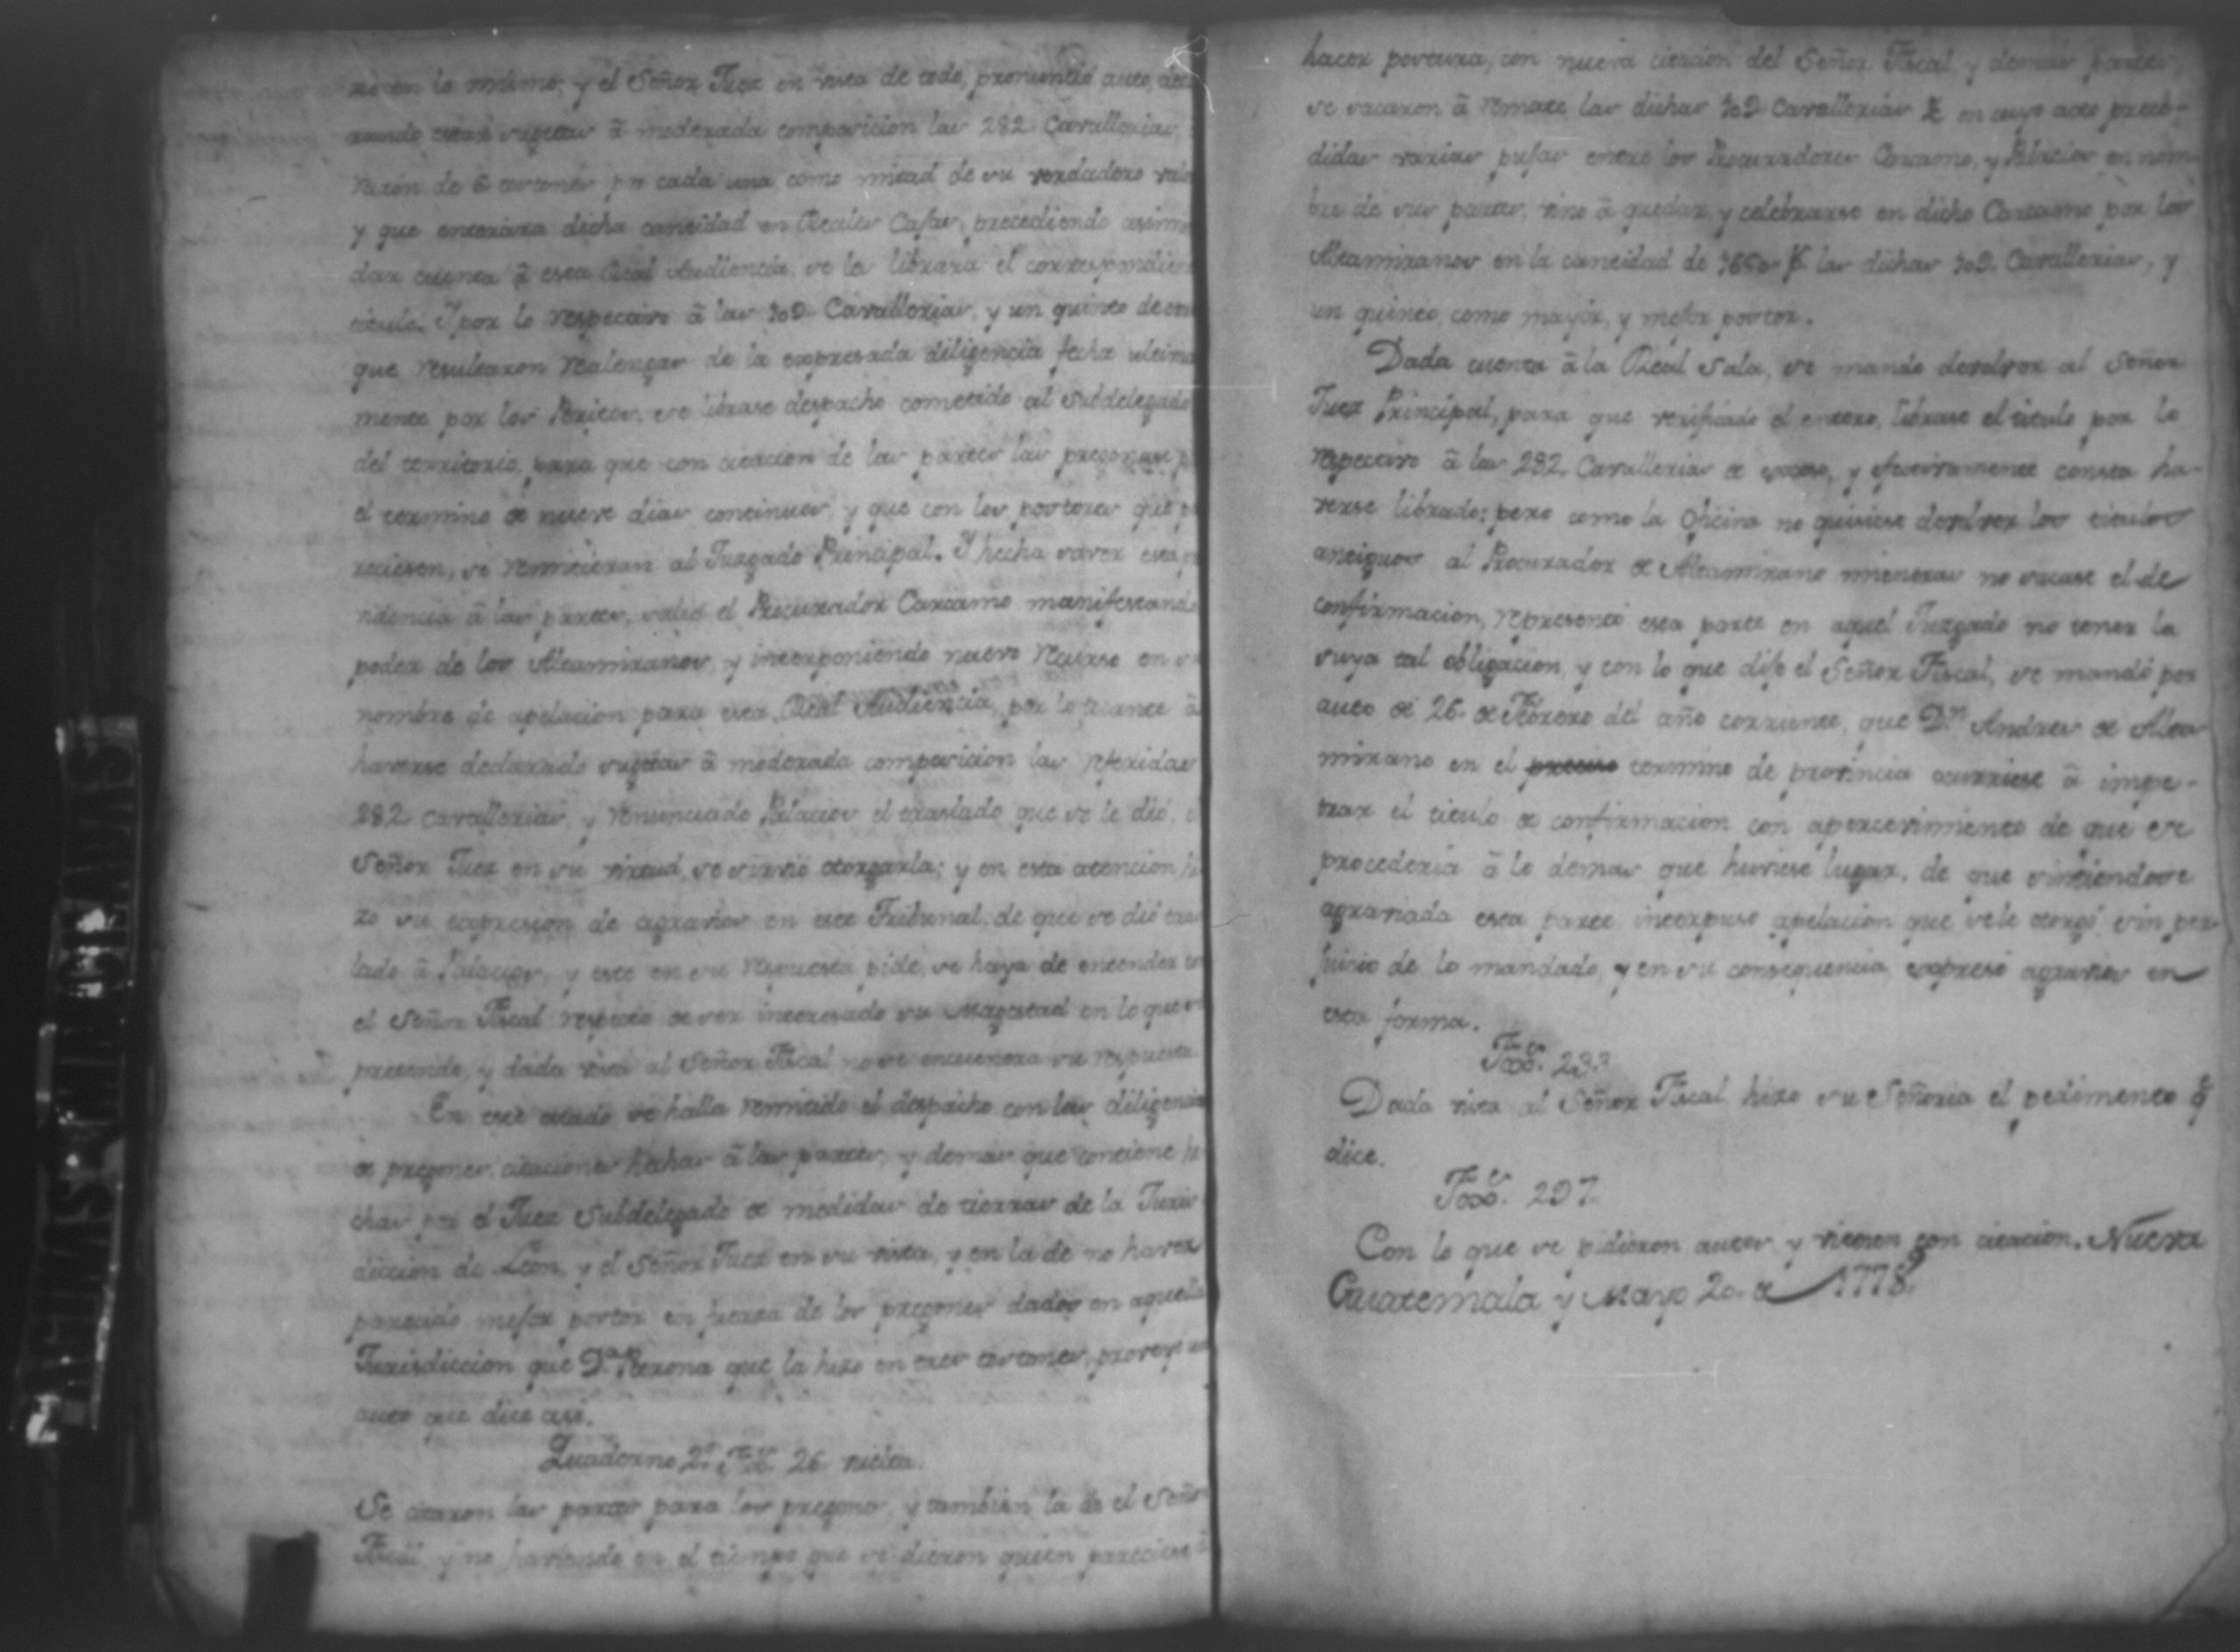 lo mismo; y el Señor Juez en vista de todo, pronunció auto,
sugetas â moderada composicion las 282 Cavallerias,
razón de 6 tostones por cada una como mitad de su verdadero valo
y que enterára dicha cantidad en Reales Cajas, precediendo
dar cuenta â esta Real Audiencia, se le librara el correspondien
titulo. Y por lo respectivo â las Cavallerias, y un quinto de
que resultaron realengas de la expresada diligencia fecha ultima
mente por los Peritos, se librase despacho cometido al Subdelegado
del territorio, para que con citacion de las partes las pregonase
el termino de nueve dias continuos, y que con los postores que
reciesen, se remitieran al Juzgado Principal. Y hecha saver esta
videncia â las partes, salió el Procurador Carcamo manifestando
poder de los Altamiranos, y interponiendo nuevo recurso en
nombre de apelacion para esta Real Audiencia, por lo tocante â
haverse declarado sugetas â moderada composicion las referidas
282 cavallerias, y renunciado Palacios el traslado que se le dió, e
Señor Juez en su virtud, se sirvió otorgarla; y en esta atencion hi
zo su expresion de agravios en este Tribunal, de que se dió tras
lado â Palacios, y este en su respuesta pide, se haya de entender
el Señor Fiscal respecto de ser interesado su Magestad en lo que
pretende, y dada vista al Señor Fiscal no se encuentra su respuesta.
En este estado se halla remitido el despacho con las diligencia
de pregones, citaciones hechas â las partes, y demas que contiene he
chas por el Juez Subdelegado de medidas de tierras de la Juris
diccion de Leon, y el Señor Juez en su vista, y en la de no haver
parecido mejor postor en fuerza de los pregones dados en aquella
Jurisdiccion que Dª. Petrona que la hizo en tres tostones, proveyó un
auto que dice asi.
Quaderno 2º. 26 vuelta.
Se citaron las partes para los pregones, y tambien la de el Señor
Fiscal, y no haviendo en el tiempo que se dieron quien pareciese â
hacer postura, con nueva citacion del Señor Fiscal, y demas partes,
se sacaron â remate las dichas Cavallerias en cuyo acto prece-
didas varias pujas entre los Procuradores Carcamo, y Palacios en nom-
bre de sus partes, vino â quedar, y celebrarse en dicho Carcamo por los
Altamiranos en la cantidad de las dichas Cavallerias, y
un quinto, como mayor, y mejor postor.
Dada cuenta â la Real Sala, se mandó devolver al Señor
Juez Principal, para que verificado el entero, librase el titulo por lo
respectivo â las 282. Cavallerias de exceso, y efectivamente consta ha-
verse librado; pero como la Oficina no quisiese devolver los titulos
antiguos al Procurador de Altamirano mientras no sacase el de
confirmacion, representó esta parte en aquel Juzgado no tener la
suya tal obligacion, y con lo que dijo el Señor Fiscal, se mandó por
auto de 26. de Febrero del año corriente, que Dn. Andres de Alta
mirano en el preciso termino de provincia ocurriese â impe-
trar el titulo de confirmacion con apercevimiento de que se
procederia â lo demas que huviese lugar, de que sintiendose
agraviada esta parte, interpuso apelacion que se le otorgó sin per
juicio de lo mandado, y en su consequencia, expresó agravios en
esta forma.
233.
Dada vista al Señor Fiscal hizo su Señoria el pedimento q̃
dice.
297.
Con lo que se pidieron autos y vienen con citacion. Nueva
Guatemala y Mayo 20. de 1778.